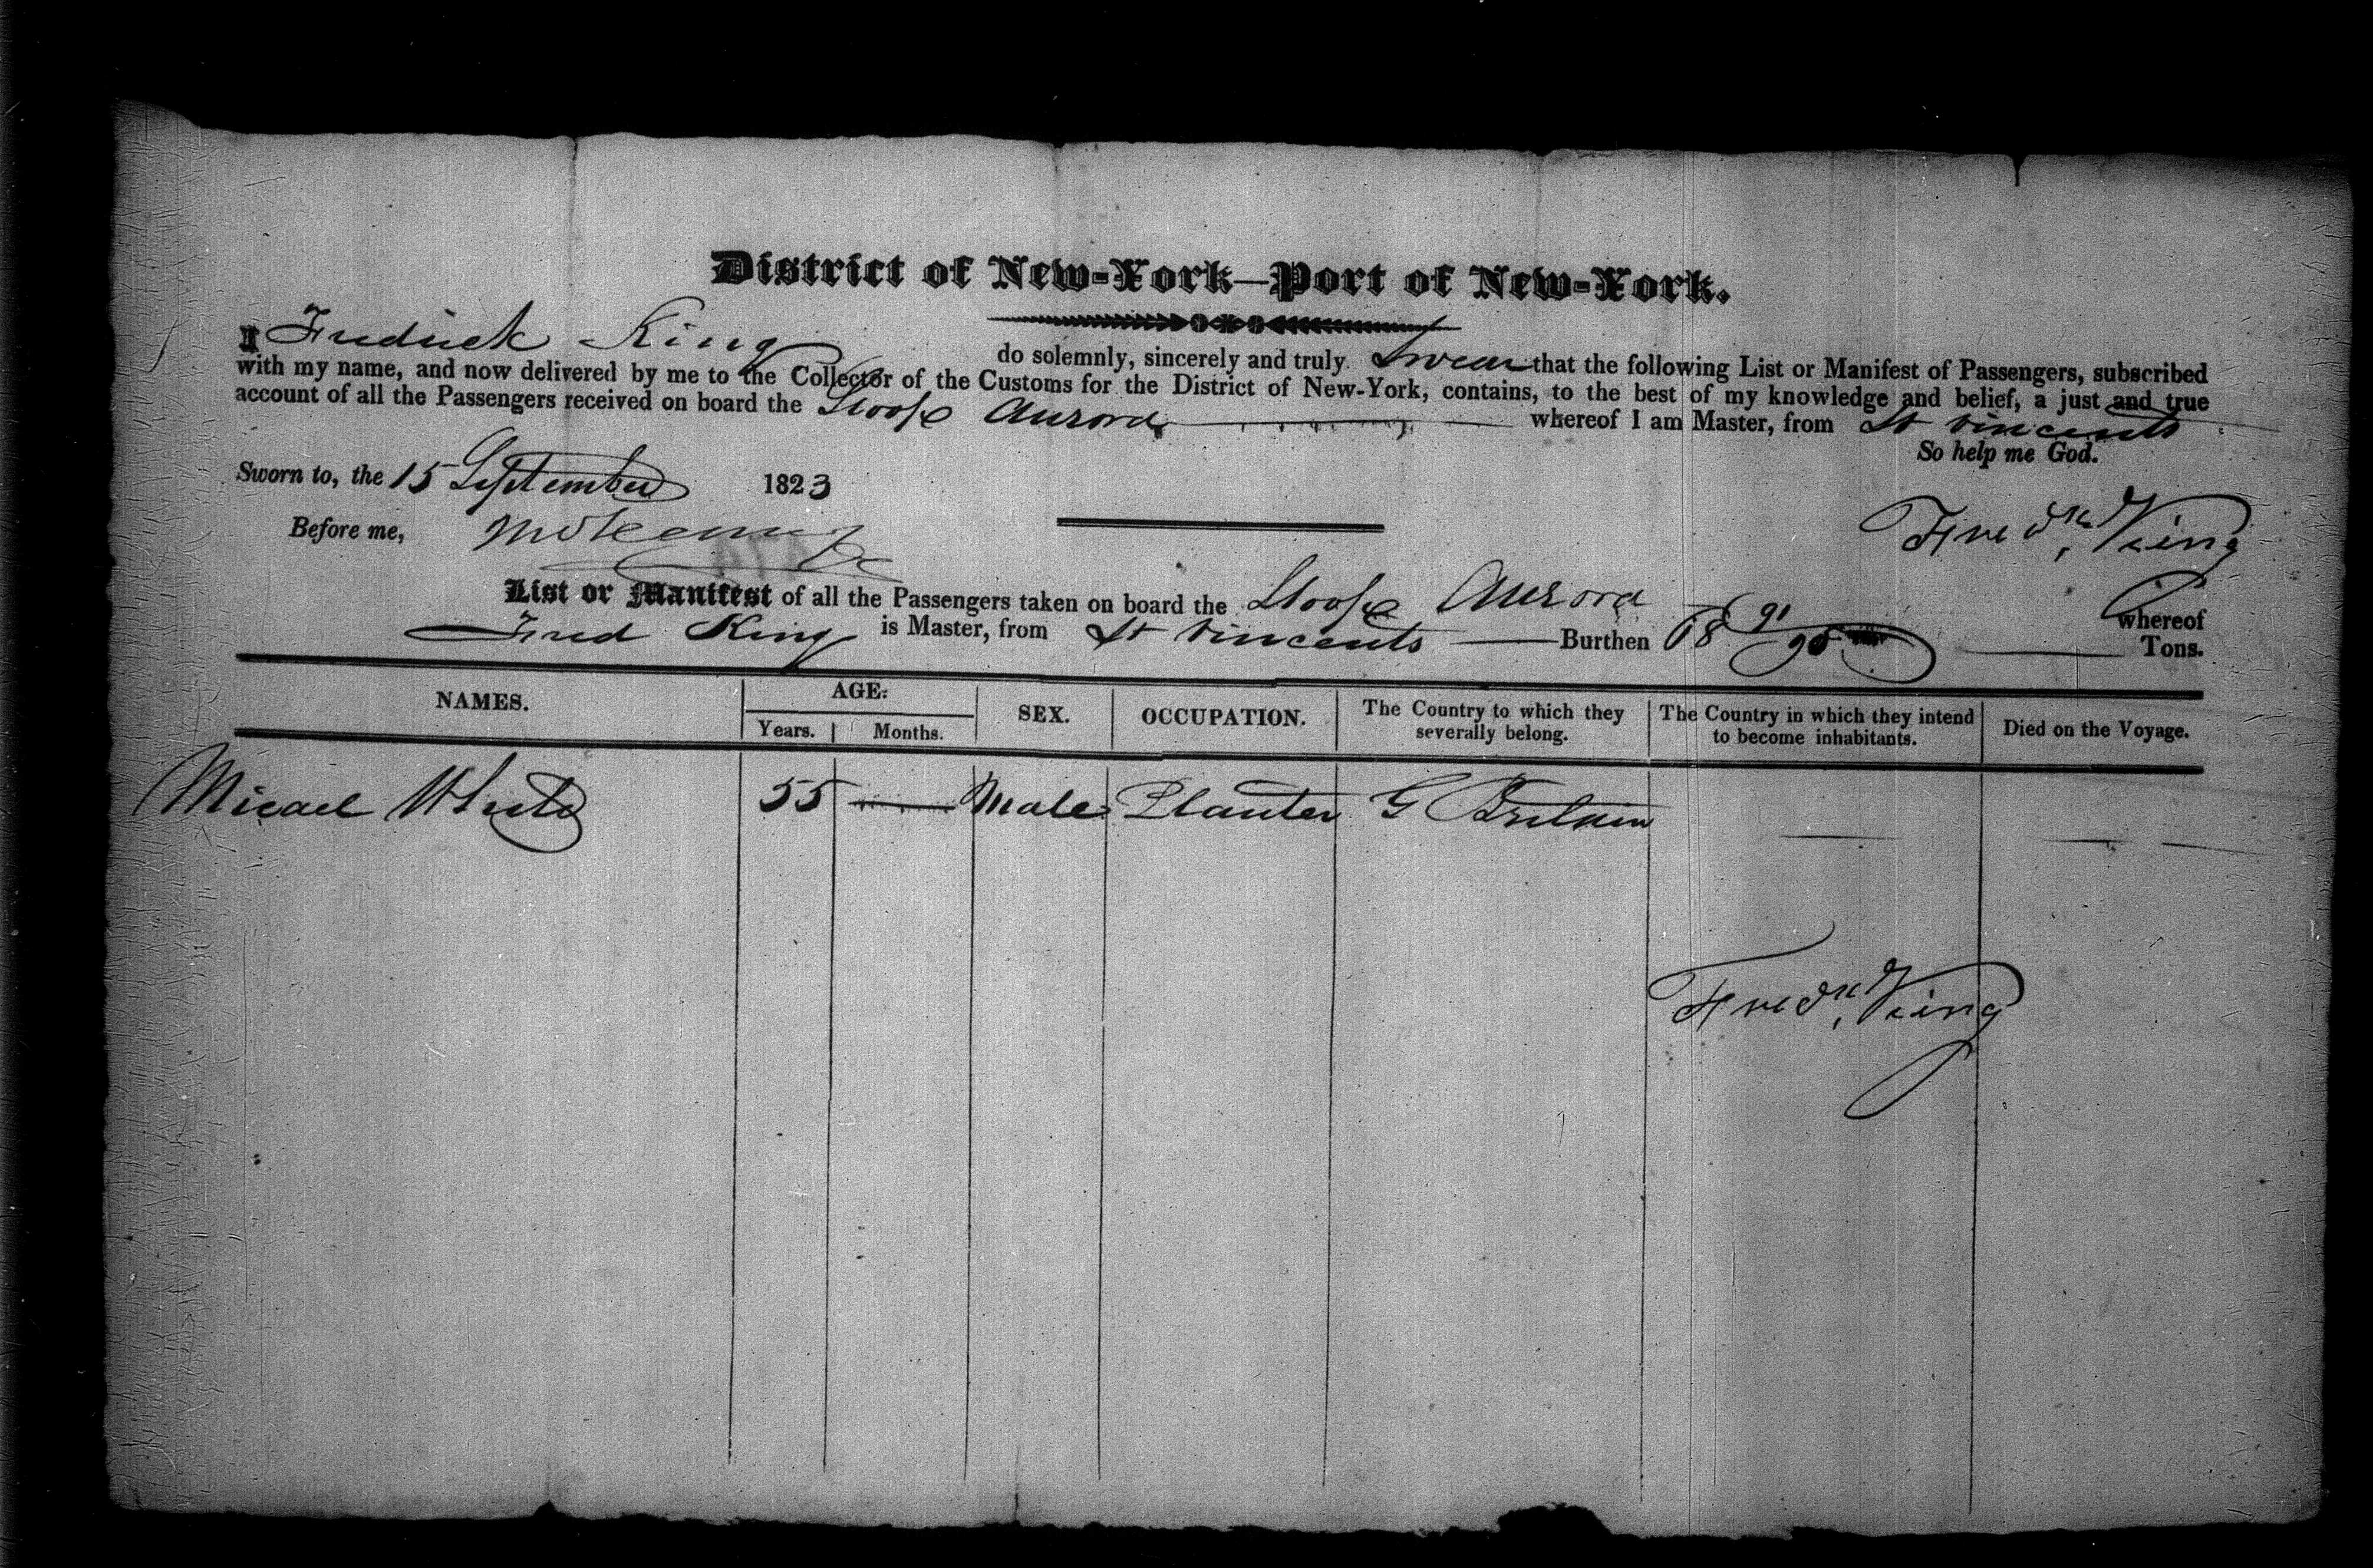 District of New-York—Port of New-York.
I Fredrick King do solemnly, sincerely and truly Swear that the following List or Manifest of Passengers, subscribed
with my name, and now delivered by me to the Collector of the Customs for the District of New-York, contains, to the best of my knowledge and belief, a just and true
account of all the Passengers received on board the Sloop Aurora whereof I am Master, from St Vincents
So help me God.
Sworn to, the 15 September 1823
Before me,
Fredk King
List or Manifest of all the Passengers taken on board the Sloop Aurora whereof
Fred King is Master, from St Vincents Burthen 68 91/95 Tons.
NAMES. AGE: SEX. OCCUPATION. The Country to which they severally belong. The Country in which they intend to become inhabitants. Died on the Voyage.
Years. Months.
Micael White 55 — Male Planter G Britain
Fredk King